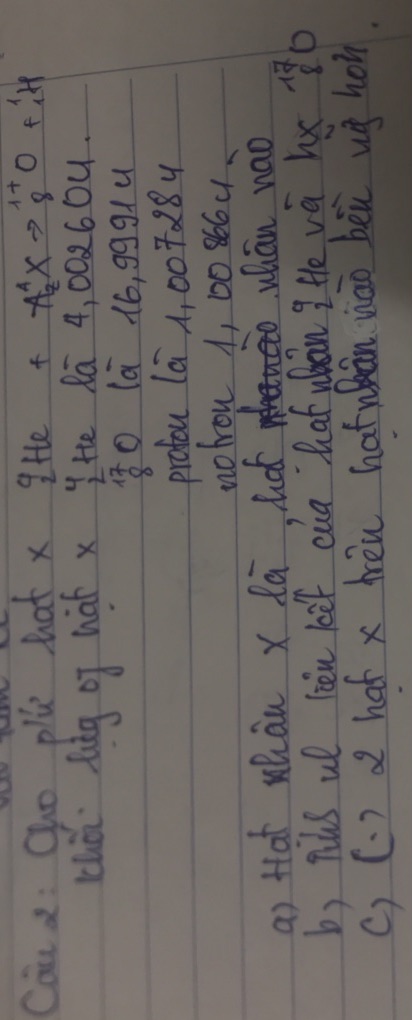 Câu 2: Cho p/ứ hạt x ⁴₂He + ᴬ_Z X → ¹⁷₈O + ¹₁H
khối lượg of hạt x ⁴₂He là 4,00260u.
¹⁷₈O là 16,9991u
proton là 1,00728u
notron 1,00866u
a) Hạt nhân x là hạt nhân nào
b) Tính nl liên kết của hạt nhân ⁴₂He và hx ¹⁷₈O
c) (.) 2 hạt x trên hạt nhân nào bền vữg hơn.